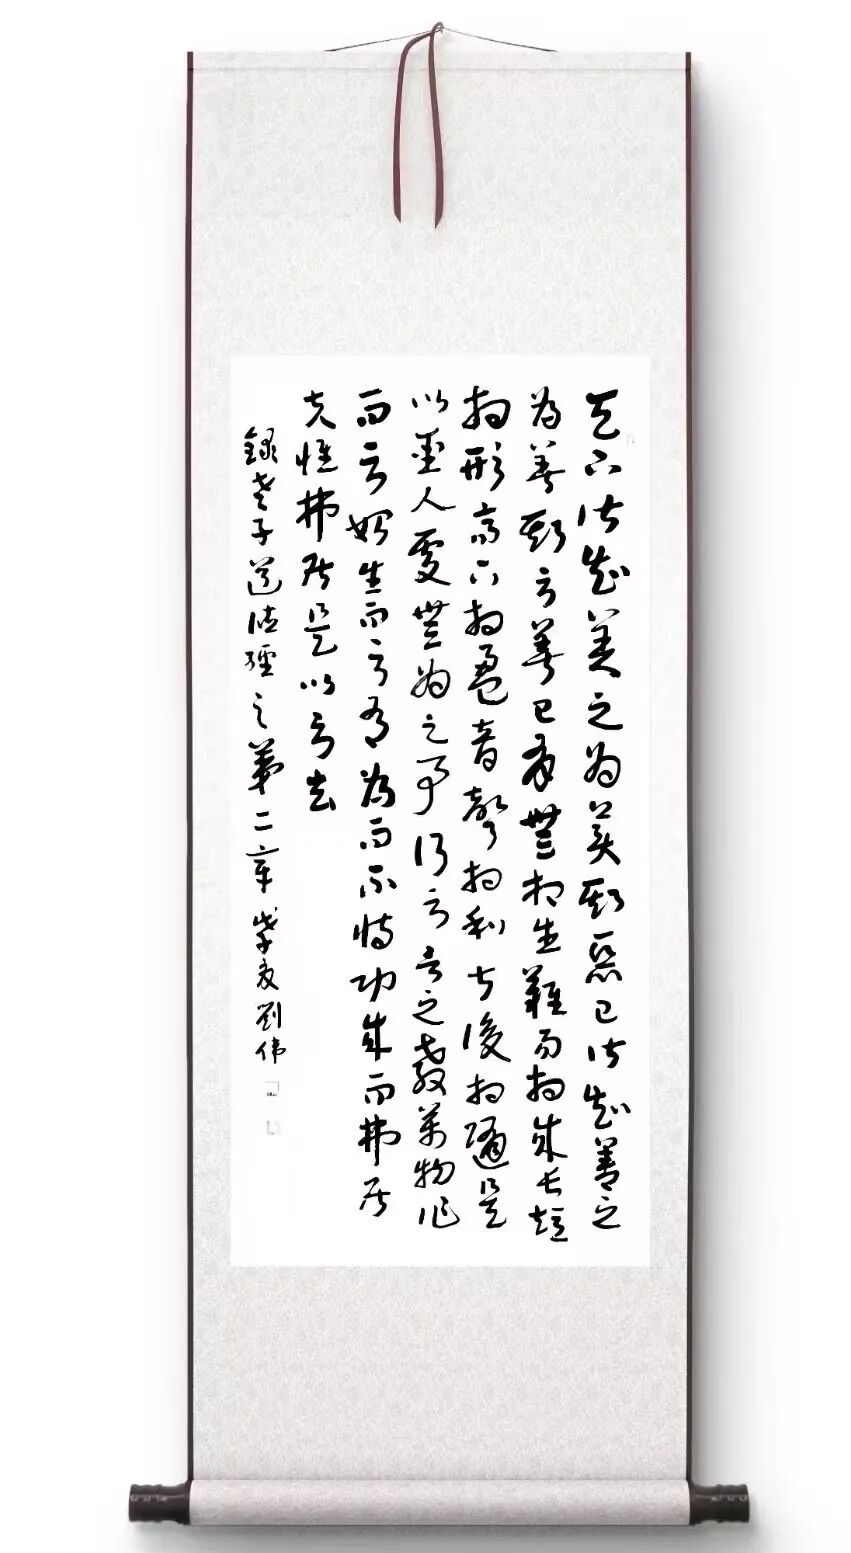 天下皆知美之為美斯惡已皆知善之
為善斯不善已有無相生難易相成長短
相形高下相盈音聲相和前後相隨是
以聖人處無為之事行不言之教萬物作
而不始生而不有為而不恃功成而弗居
夫惟弗居是以不去
錄老子道德經之第二章 劉伟